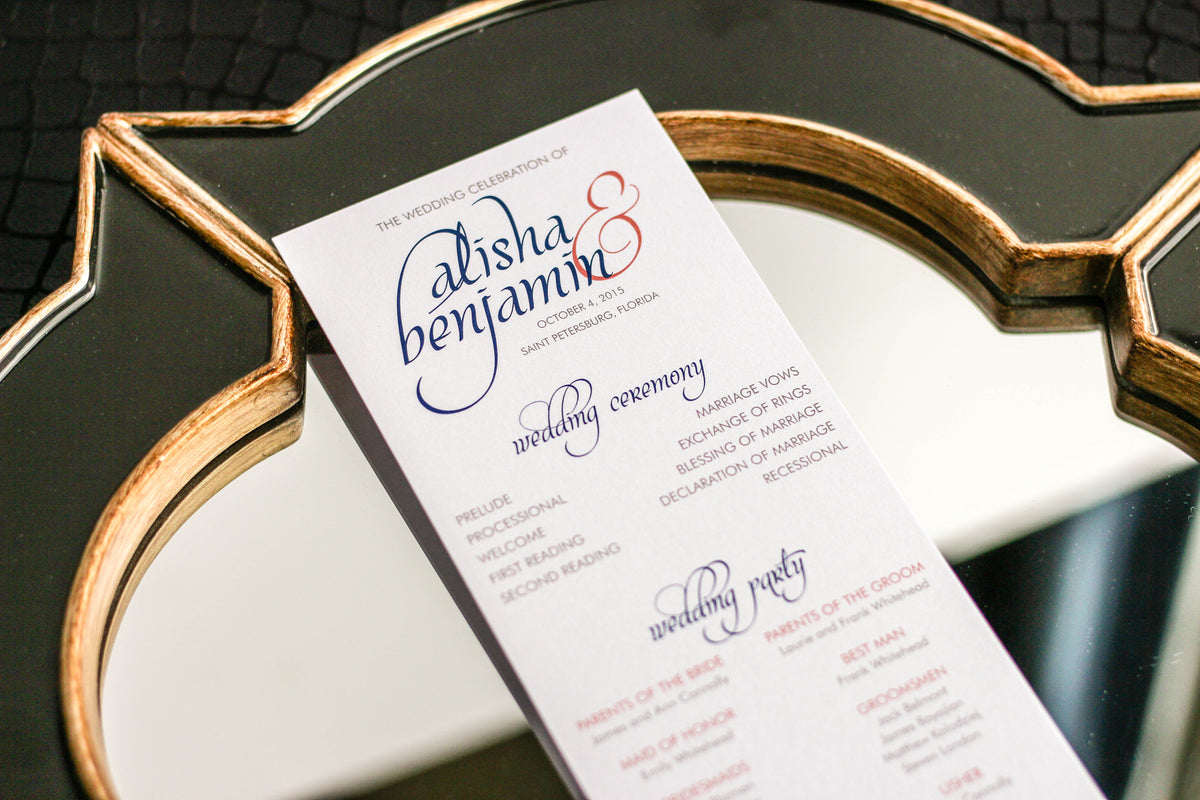 THE WEDDING CELEBRATION OF
alisha &
benjamin
OCTOBER 4, 2015
SAINT PETERSBURG, FLORIDA
wedding ceremony
PRELUDE
PROCESSIONAL
WELCOME
FIRST READING
SECOND READING
MARRIAGE VOWS
EXCHANGE OF RINGS
BLESSING OF MARRIAGE
DECLARATION OF MARRIAGE
RECESSIONAL
wedding party
PARENTS OF THE BRIDE
James and Ann Connolly
MAID OF HONOR
Emily Whitehead
BRIDESMAIDS
PARENTS OF THE GROOM
Laurie and Frank Whitehead
BEST MAN
Frank Whitehead
GROOMSMEN
Jack Belmont
James Boyajian
Matthew Kolodziej
Steven London
USHER
Connolly